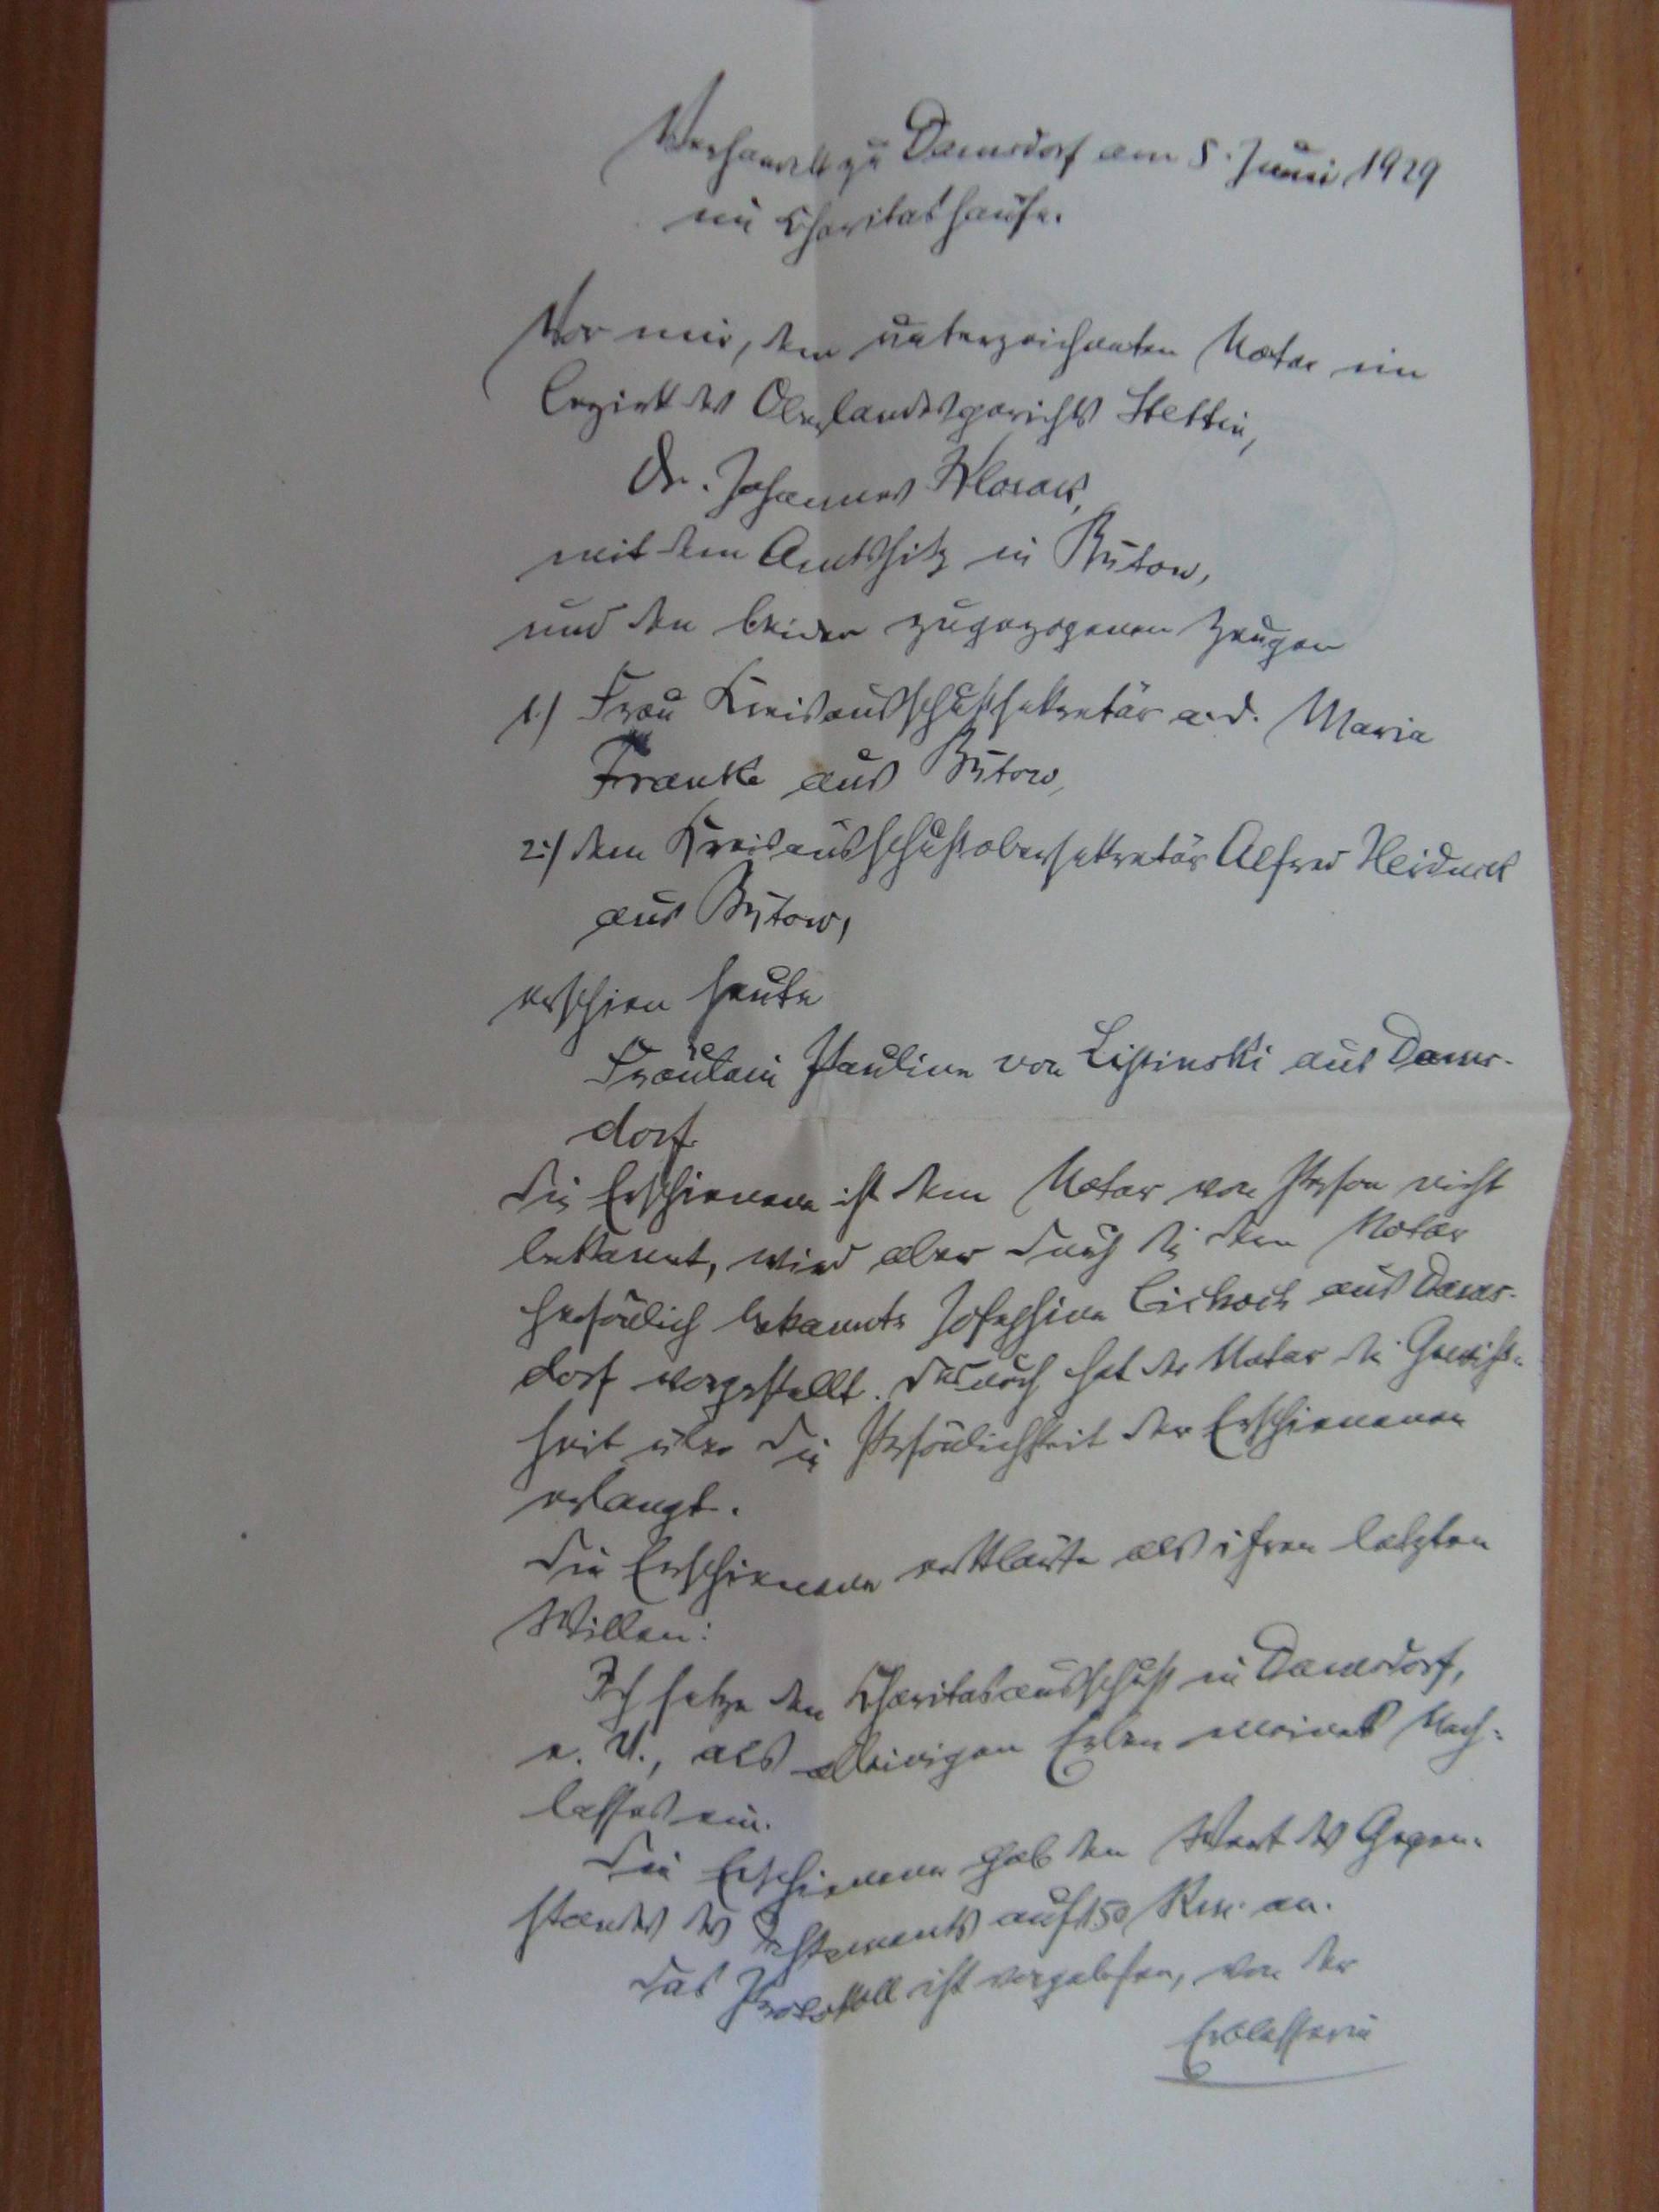 Verhandelt zu Damsdorf am 5. Juni 1929
im Charitashause.
Vor mir, dem unterzeichneten Notar im
Bezirk des Oberlandesgerichts Stettin,
Dr. Johannes
mit dem Amtssitz in Bütow,
und den beiden zugezogenen Zeugen
1.) Frau Kreisausschußsekretär a.d. Maria
Franke aus Bütow,
2.) dem Kreisausschußobersekretär Alfred
aus Bütow,
erschien heute
Fräulein Pauline von Lipinski aus Dams-
dorf.
Die Erschienene ist dem Notar von Person nicht
bekannt, wird aber durch die dem Notar
persönlich bekannte Josephine aus Dams-
dorf vorgestellt. Dadurch hat der Notar die Gewiss-
heit über die Persönlichkeit der Erschienenen
erlangt.
Die Erschienene erklärte als ihren letzten
Willen:
Ich setze den Charitasausschuß in Damsdorf,
e. V., als alleinigen Erben meines Nach-
lasses ein.
Die Erschienene gab den Wert des Gegen-
standes des Testaments auf 150 Rm. an.
Das Protokoll ist vorgelesen, von der
Erblasserin